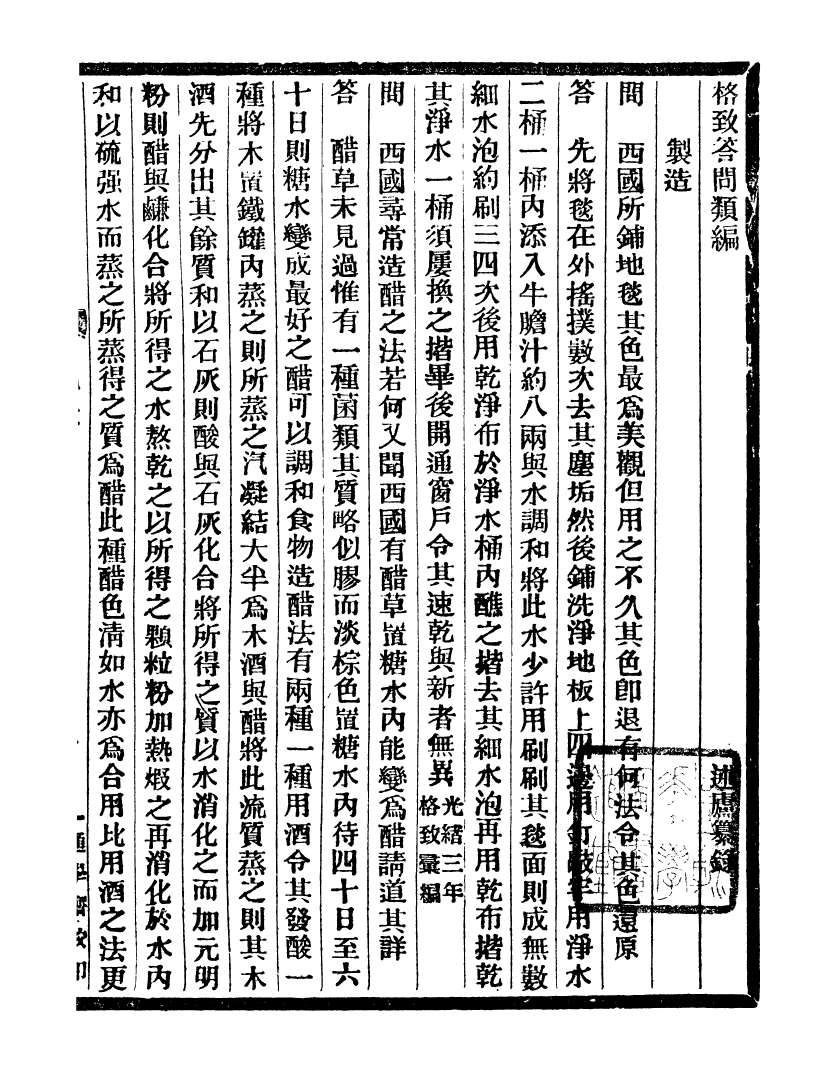 格致答問類編
述廬纂錄
製造
問　西國所鋪地毯其色最爲美觀但用之不久其色卽退有何法令其色還原
答　先將毯在外搖撲數次去其塵垢然後鋪洗淨地板上四邊用釘敲牢用淨水
二桶一桶內添入牛膽汁約八兩與水調和將此水少許用刷刷其毯面則成無數
細水泡約刷三四次後用乾淨布於淨水桶內醮之揩去其細水泡再用乾布揩乾
其淨水一桶須屢換之揩畢後開通窗戶令其速乾與新者無異光緒三年
格致彙編
問　西國尋常造醋之法若何又聞西國有醋草置糖水內能變爲醋請道其詳
答　醋草未見過惟有一種菌類其質略似膠而淡棕色置糖水內待四十日至六
十日則糖水變成最好之醋可以調和食物造醋法有兩種一種用酒令其發酸一
種將木置鐵罐內蒸之則所蒸之汽凝結大半爲木酒與醋將此流質蒸之則其木
酒先分出其餘質和以石灰則酸與石灰化合將所得之質以水消化之而加元明
粉則醋與鹻化合將所得之水熬乾之以所得之顆粒粉加熱煅之再消化於水內
和以硫强水而蒸之所蒸得之質爲醋此種醋色淸如水亦爲合用比用酒之法更